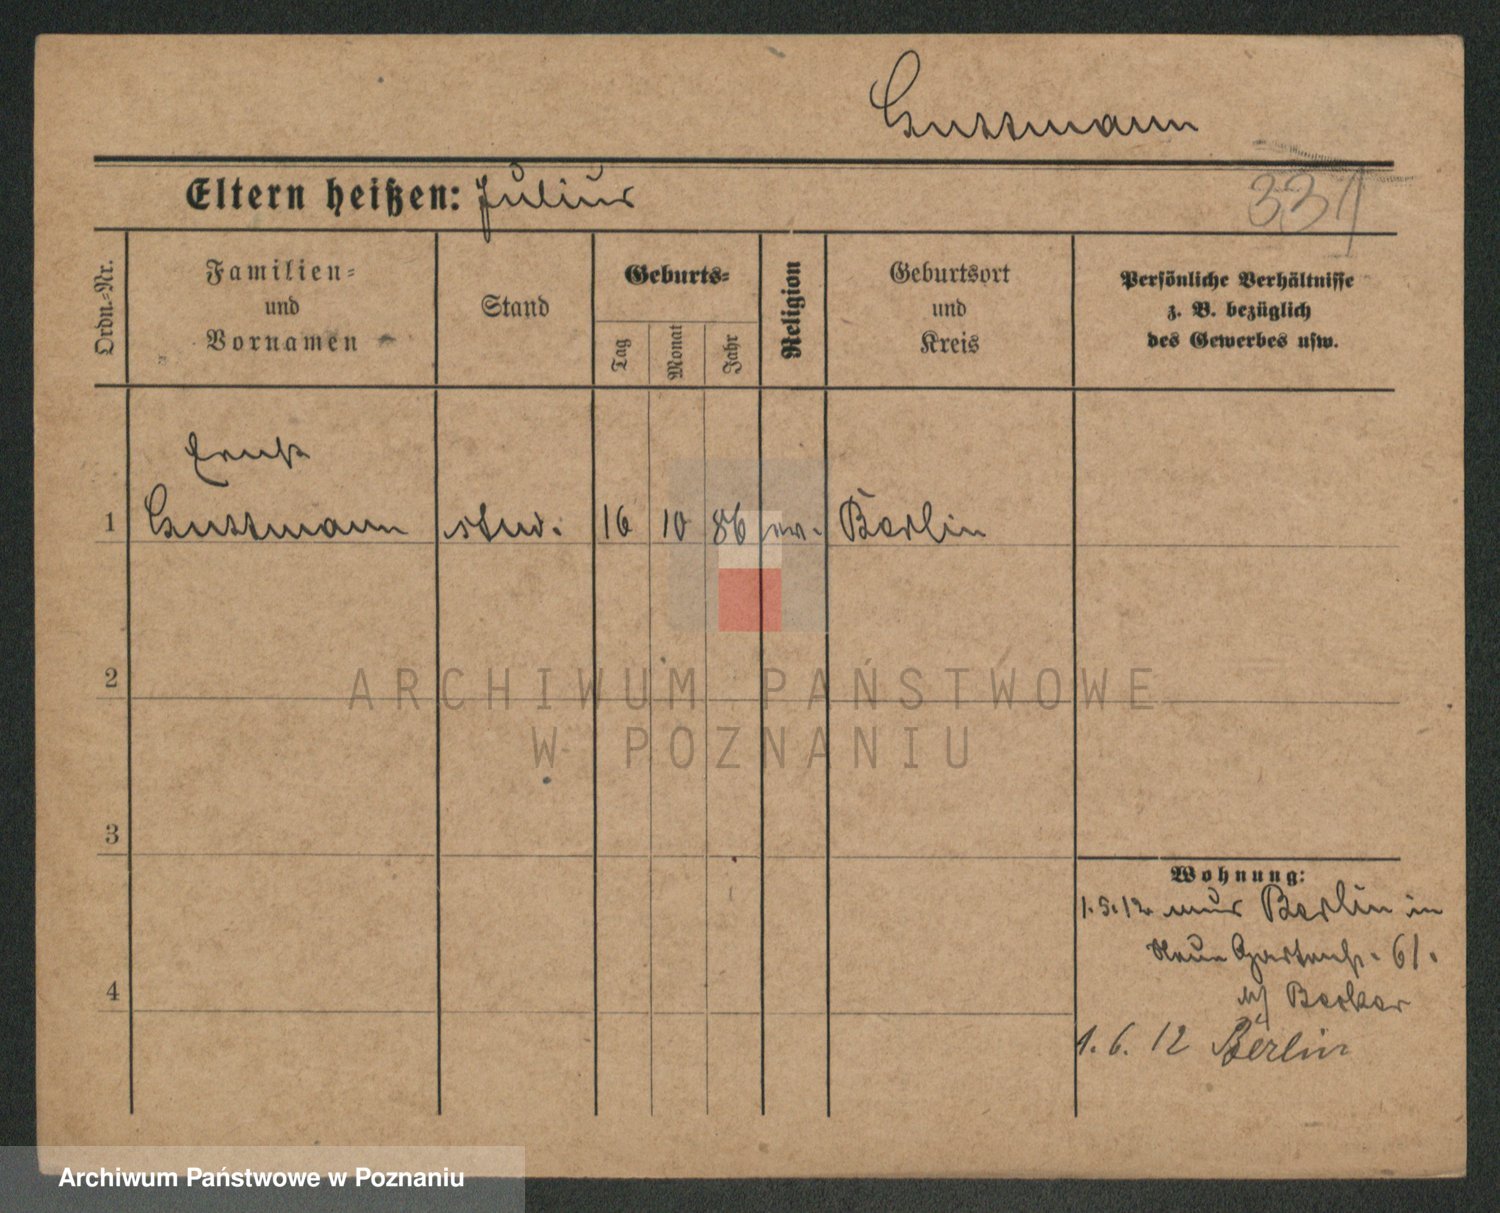 Guttmann
Eltern heißen: Julius
331
Ordn.-Nr.
Familien-
und
Vornamen
Stand
Geburts-
Tag
Monat
Jahr
Religion
Geburtsort
und
Kreis
Persönliche Verhältnisse
z. B. bezüglich
des Gewerbes usw.
Ernst
1 Guttmann stud. 16 10 86 ev. Berlin
2
ARCHIWUM PAŃSTWOWE
W POZNANIU
3
Wohnung:
1.5.12 Berlin in
Neue Gartenstr. 61.
4
b/ Becker
1.6.12 Berlin
Archiwum Państwowe w Poznaniu